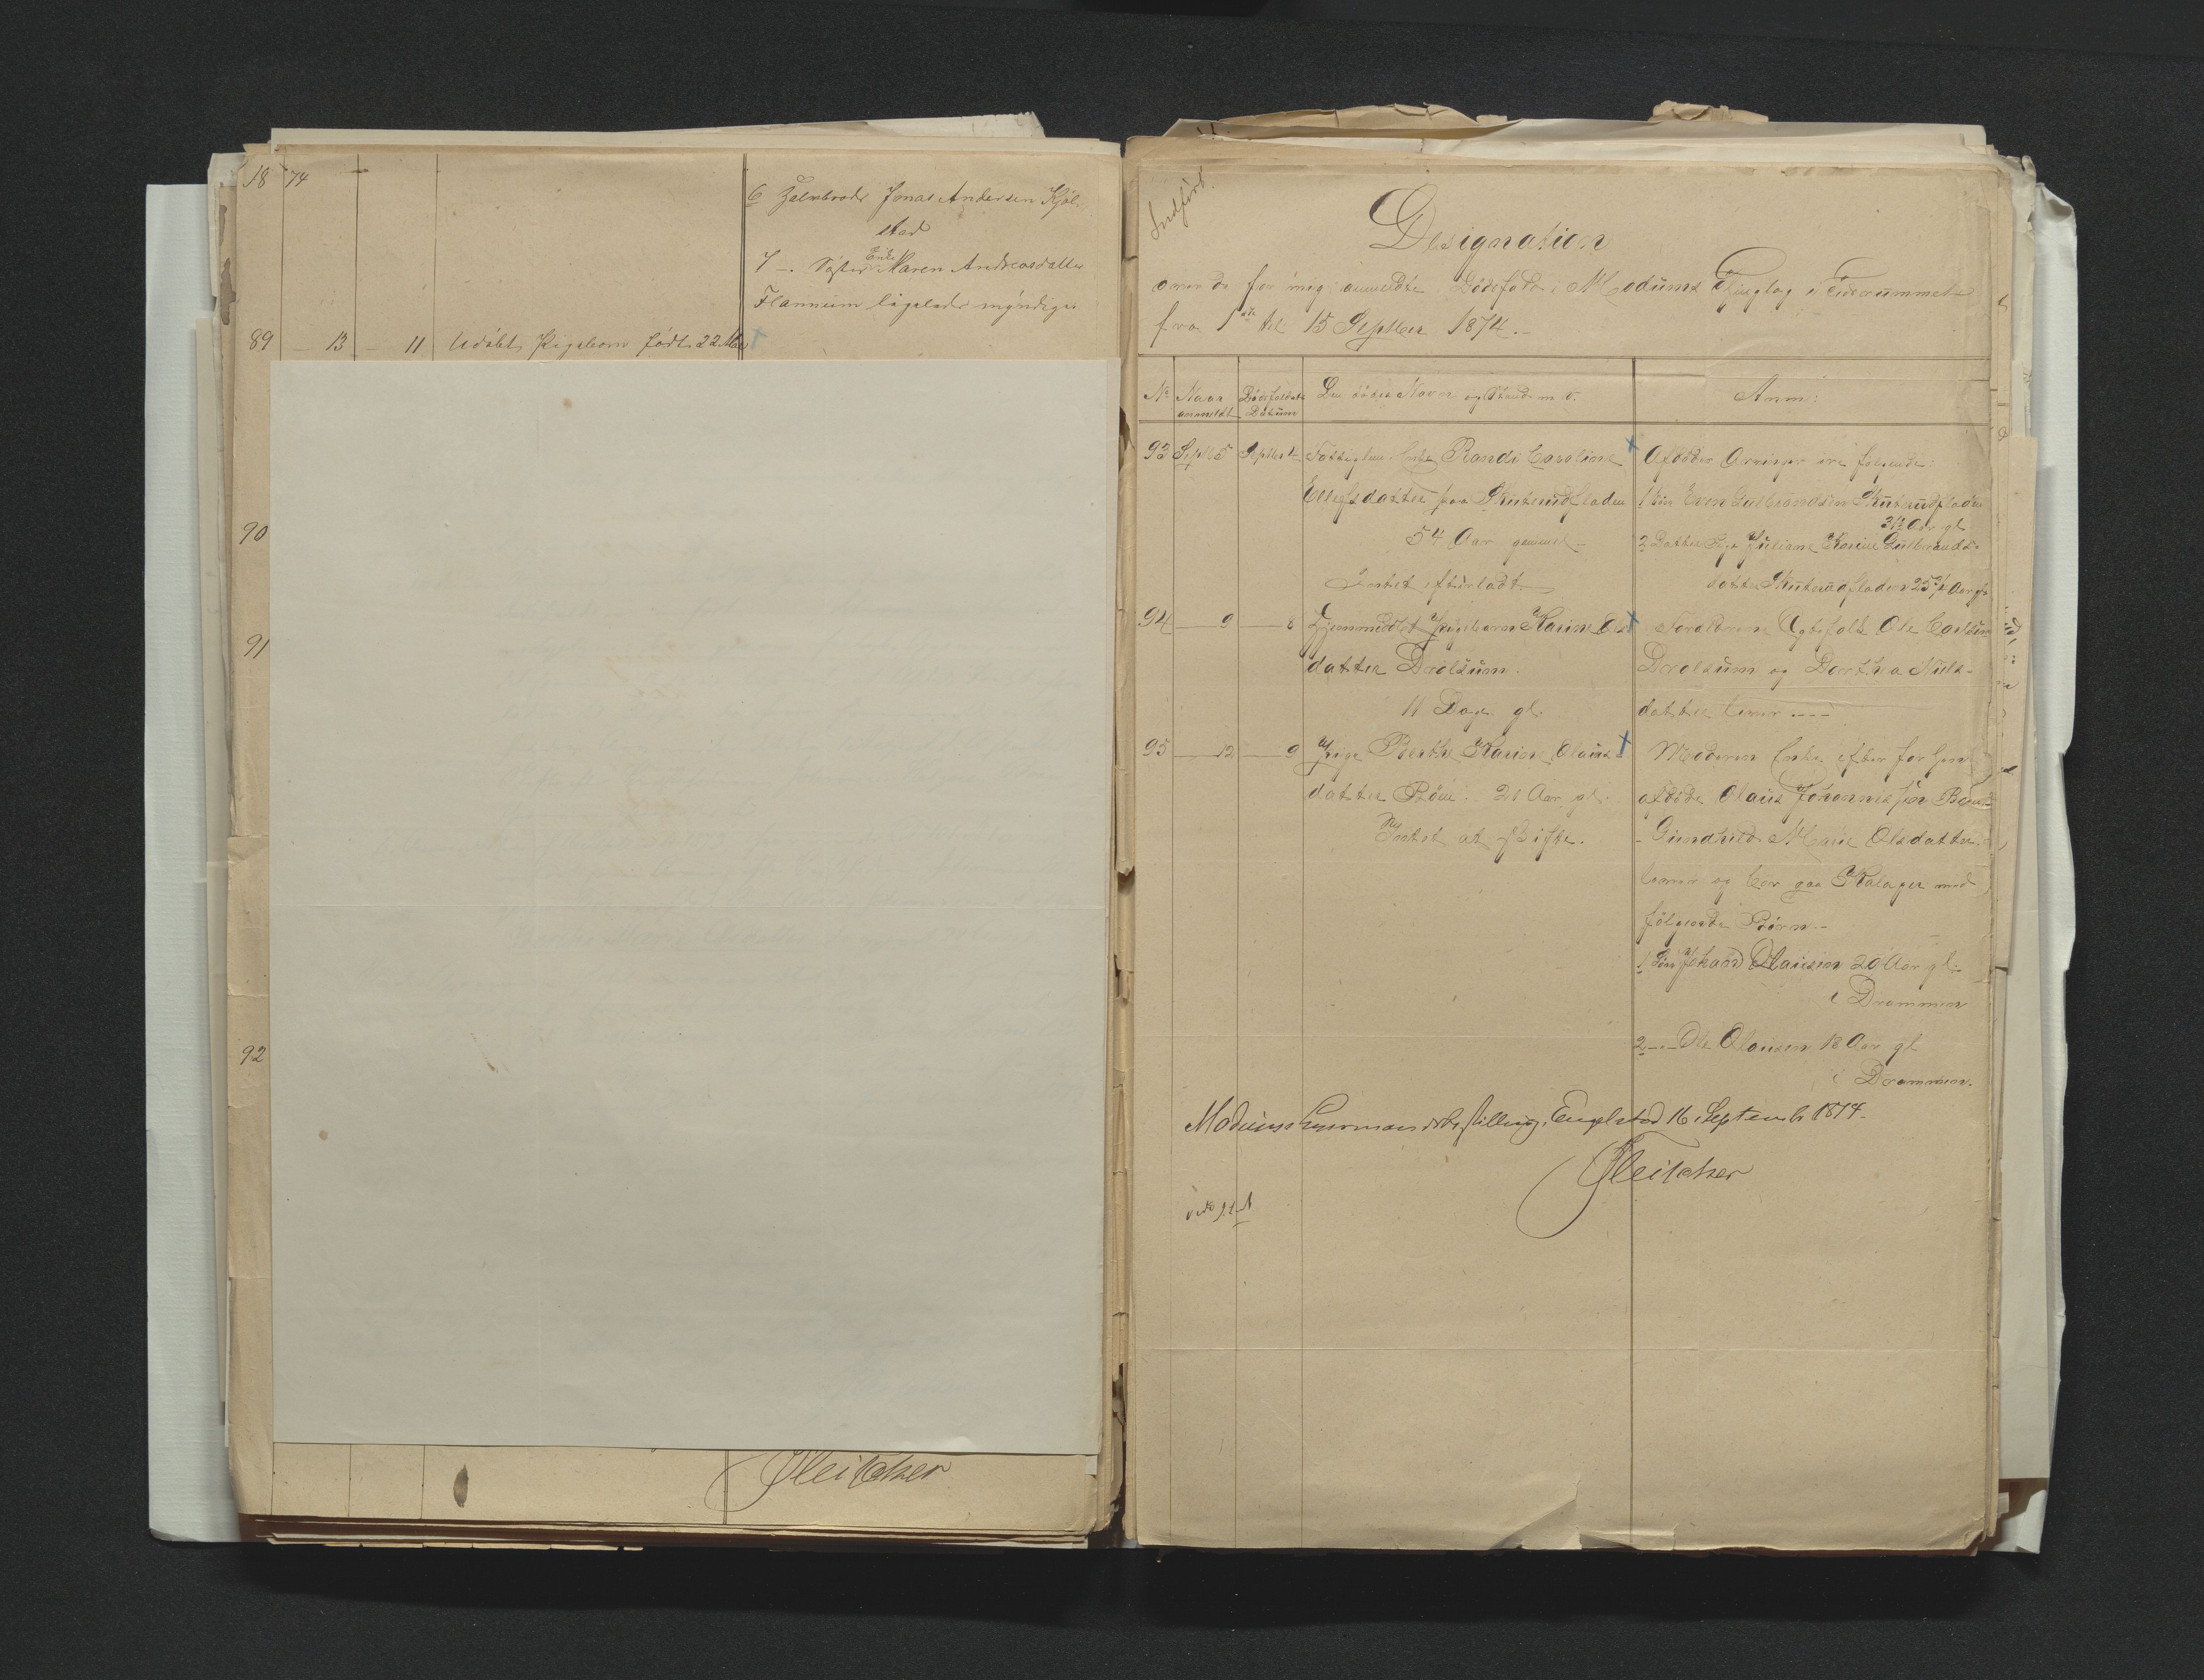 18 74
6 Halvbroder Jonas Andersen Kjøl-
stad
7 -. Søster Enke Maren Andreasdatter
Flannum ligeledes myndige
89 13 11 Udøbt Pigebarn født 22 Mai
90
91
92
Fleischer
Indført.
Designation
over de for mig anmeldte Dødsfald i Modums Thinglag i Tidsrummet
fra 1ste til 15 Septber 1874.-
No Naar anmeldt Dødsfaldets Datum Den dødes Navn og Stand m. v. Anm:
93 Septb 5 Septber 1 Fattiglem Enke Randi Caroline
Ellefsdatter paa Skuterudfladen
54 Aar gammel.-
Intet efterladt.
Afdødes Arvinger ere følgende:
1 Søn Even Gulbrandsen Skuterudfladen
31 1/2 Aar gl
2 Datter Pige Juliane Karine Gulbrands-
datter Skuterudfladen 25 3/4 Aar gl
94 9 8 Hjemmedøbt Pigebarn Karine Ols-
datter Drolsum.
11 Dage gl.
Forældrene Ægtefolk Ole Carlsen
Drolsum og Dorthea Niels-
datter lever.---
95 12 9 Pige Berthe Karine Olaus-
datter Bøen. 21 Aar gl.
Intet at skifte.
Moderen Enke efter forhen
afdøde Olaus Johannessen Bøen
- Gunhild Marie Olsdatter,
lever og bor paa Kalager med
følgende Børn.-
1 Søn Johan Olausen 20 Aar gl.
i Drammen
2 -.- Ole Olausen 18 Aar gl
i Drammen.
Modums Lensmandsbestilling, Engelstad 16 September 1874.
Fleischer